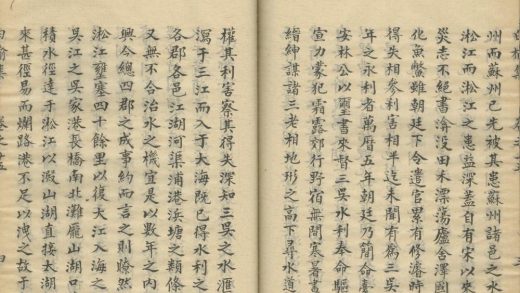 州而蘇州已先被其患蘇州諸邑之水
淞江而淞江之患益深蓋自有宋以來
災志不絕書渰没田禾漂蕩廬舍澤國
化魚鱉雖朝廷下令遣官累有修濬時
得失相參利害相半迄未聞有為三吳
年之永利者萬曆五年朝廷乃簡命臺
安林公以璽書來督三吳水利奉命驅
宣力蒙犯霜露郊行野宿無間寒暑書
縉紳謀諸三老相地形之高下尋水道
權其利害察其得失深知三吳之水滙
瀉于三江而入于大海既已得水利之
各郡各邑江湖河渠浦港浜塘之類條
又無不合治水之機宜是以數年之内
興今總四郡之成事約而言之則瞭然
淞江壅塞四十餘里以復大江入海之
吳江之吳家港長橋南北灘龎山湖口
積水徑達于淞江以澱山湖直接太湖
來甚徑易而爛路港不足以洩之故于